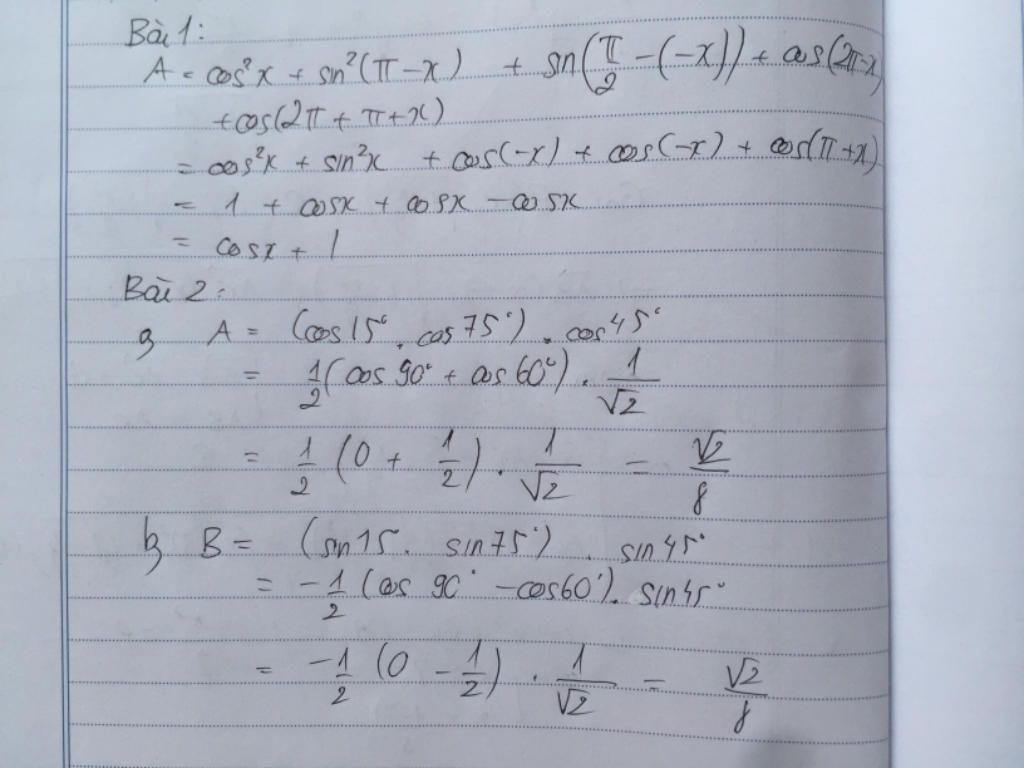 Bài 1:
A = cos²x + sin²(π - x) + sin(π/2 - (-x)) + cos(2π-x)
+cos(2π + π+x)
= cos²x + sin²x + cos(-x) + cos(-x) + cos(π+x)
= 1 + cosx + cosx - cosx
= cosx + 1
Bài 2:
a, A = (cos15° . cos75°) . cos45°
= 1/2(cos 90° + cos 60°) . 1/√2
= 1/2 (0 + 1/2) . 1/√2 = √2/8
b, B = (sin15 . sin75°) . sin45°
= -1/2 (cos 90° - cos60°) . sin45°
= -1/2 (0 - 1/2) . 1/√2 = √2/8